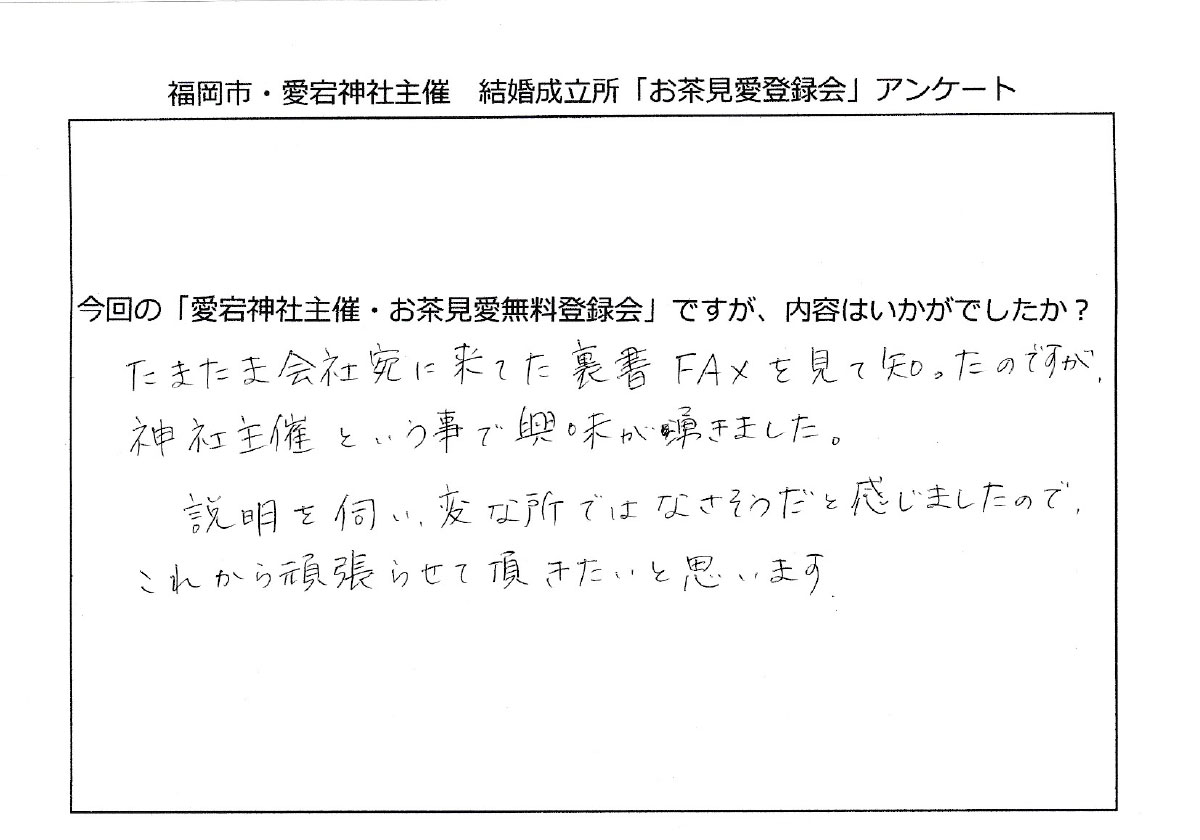 福岡市・愛宕神社主催　結婚成立所「お茶見愛登録会」アンケート
今回の「愛宕神社主催・お茶見愛無料登録会」ですが、内容はいかがでしたか？
たまたま会社宛に来てた裏書FAXを見て知ったのですが、
神社主催という事で興味が湧きました。
説明を伺い、変な所ではなさそうだと感じましたので、
これから頑張らせて頂きたいと思います.